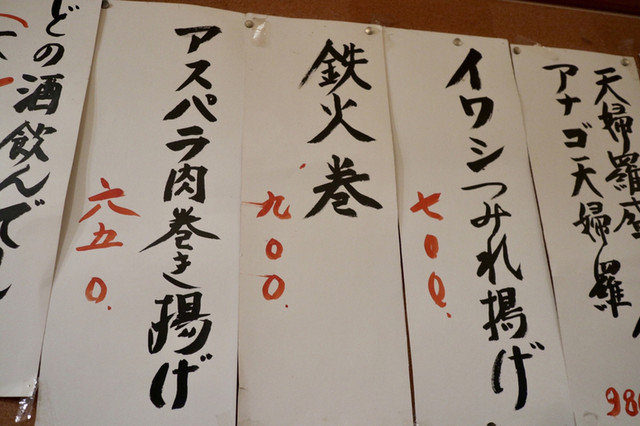 天婦羅盛
アナゴ天婦羅
980
イワシつみれ揚げ
七〇〇
鉄火巻
九〇〇
アスパラ肉巻き揚げ
六五〇
どの酒飲んで